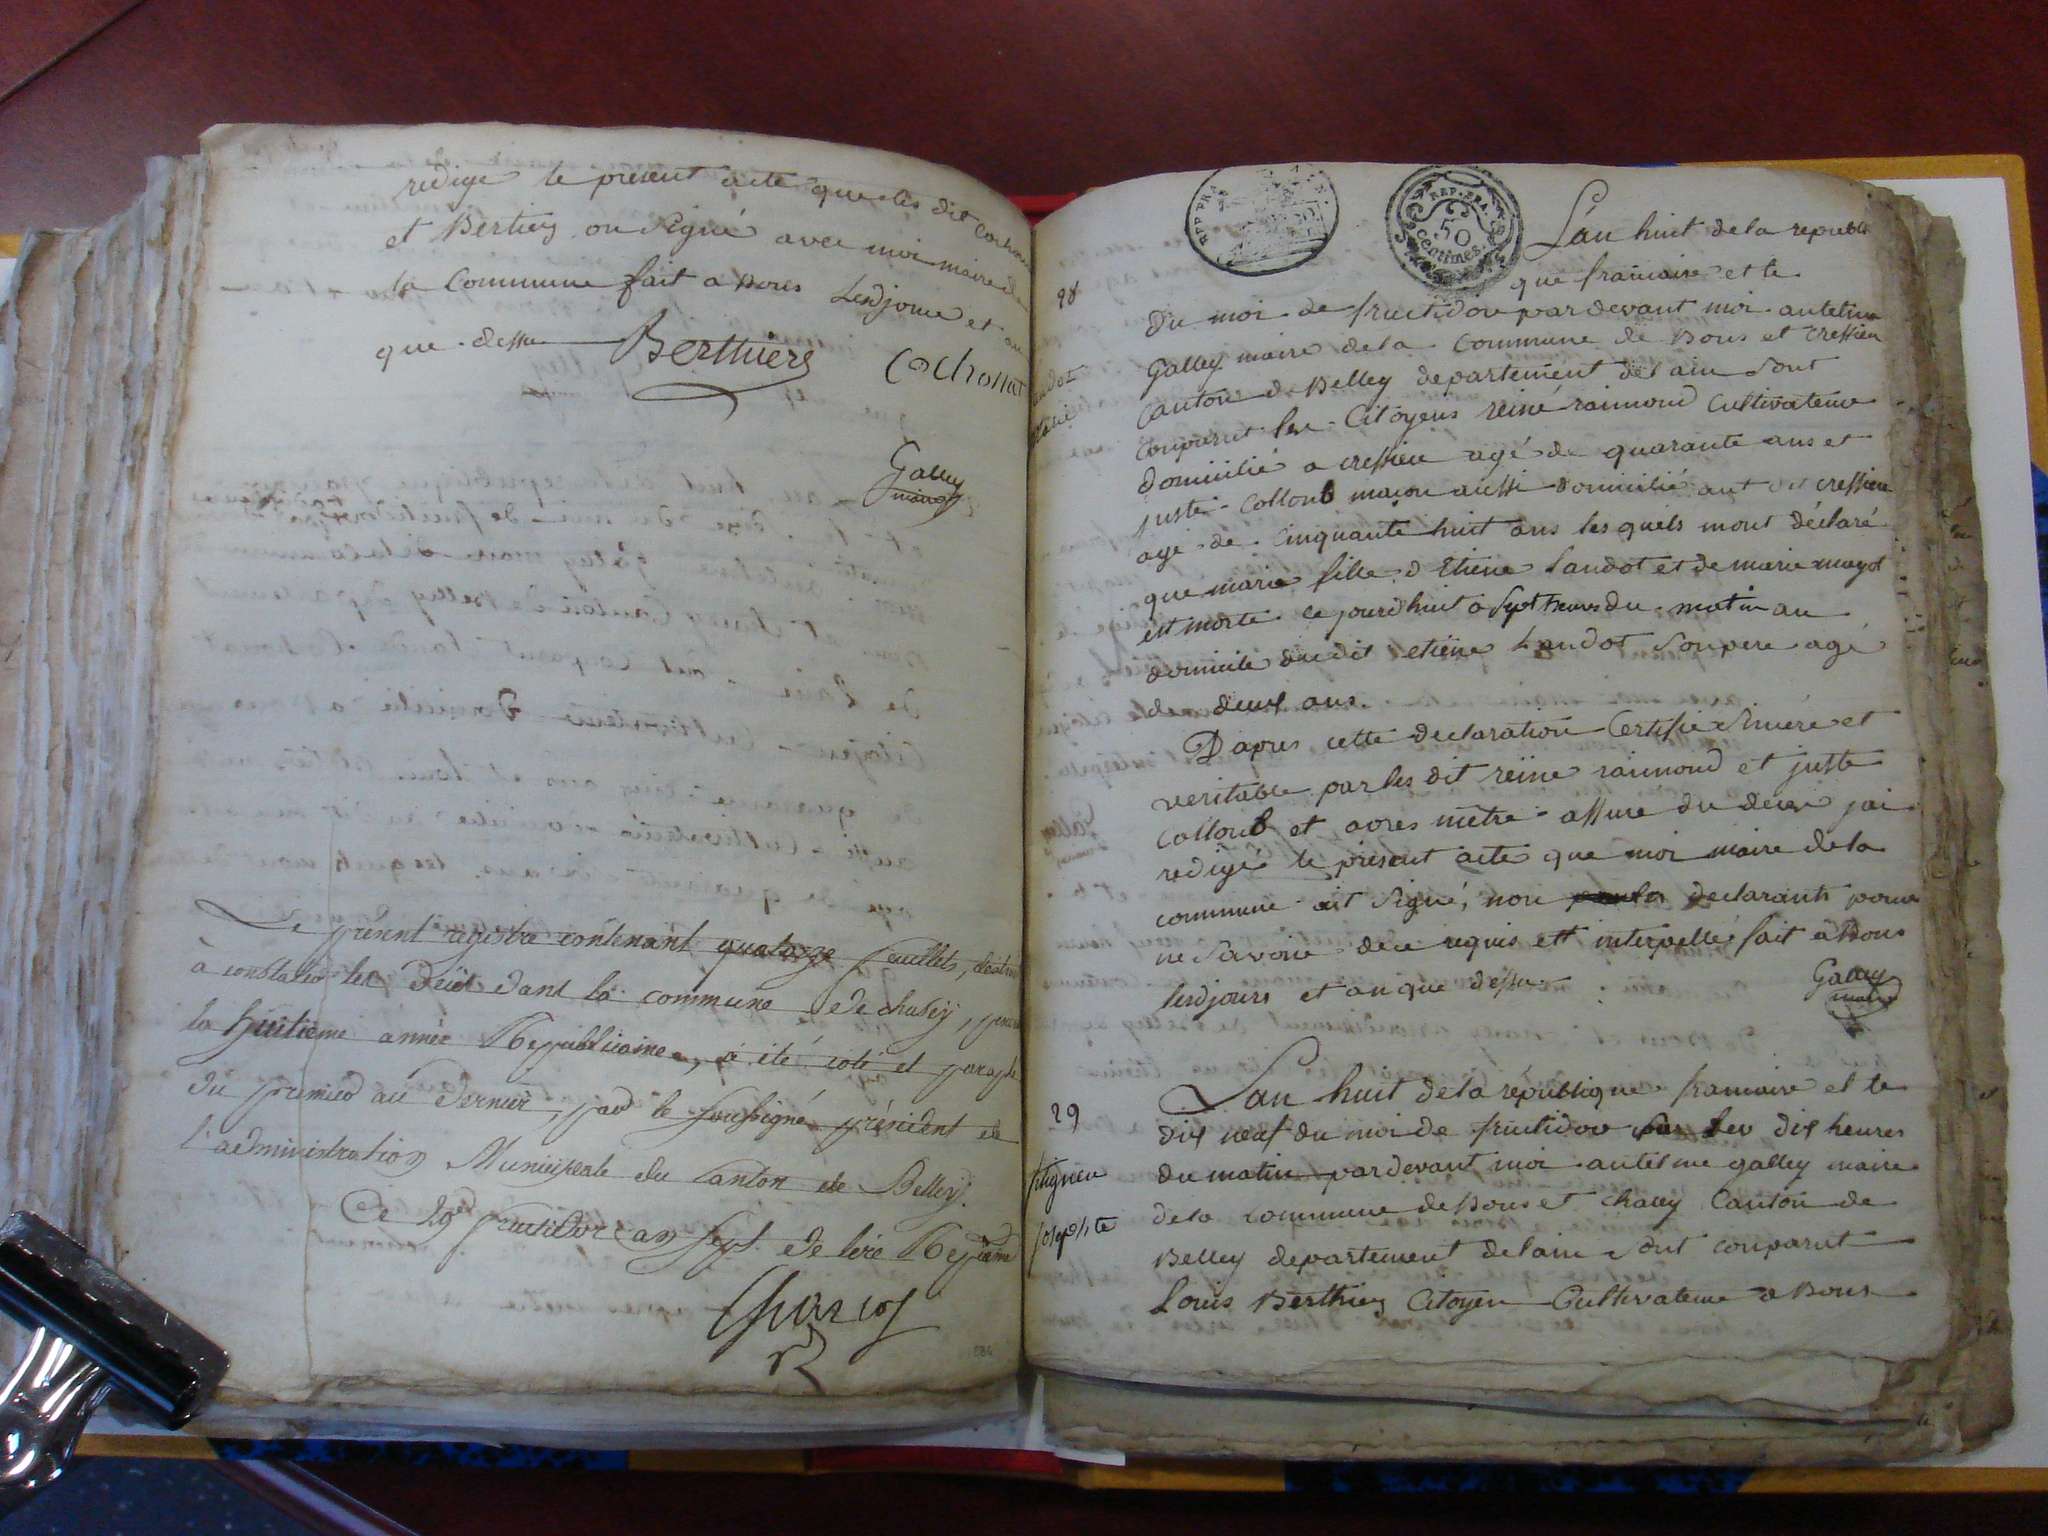 redige le présent acte que les dit Cochona
et Bertier on signé avec moi maire de
la Commune fait a Pons lesdjour et an
que dessu Berthier Cochonat
Galley
maire
Le présent registre contenant quatorze feuillets, destiné
à constater les Décès dans la commune de chasey, pour
la huitieme année Republicaine, a été coté et paraphé
du premier au dernier, par le soussigné président de
l'administration Municipale du Canton de Belley.
Ce 29 fructidor an sept de l'ère Repube
684
REP FRA
REP. FRA.
50
centimes
L'an huit de la republi
que framaise et le
28
du moi de fructidor pardevant moi antelme
Galley maire de la Commune de Pons et Cressieu
Canton de Belley departement de lain sont
Comparut les Citoyens reiné raimond Cultivateur
domicilié a cressieu agé de quarante ans et
juste Collonb maçon aussi domicilié aut dit cressieu
agé de Cinquante huit ans lesquels mont déclaré
que marie fille d Etiene Landot et de marie mayot
est morte ce jourdhuit a sept heures du matin au
domicile du dit etiene Landot son pere agé
de deux ans.
D'apres cette declaration Certifie sincere et
veritable par les dit reine raimond et juste
Collonb et apres metre assure du deces jai
redigé le présent acte que moi maire de la
commune ait signé, non declarants pour
ne savoir de ce requis ett interpellé fait a Pons
lesdjours et an que dessu.
Galley
maire
29
L'an huit de la république framaise et le
dix neuf du moi de fructidor sur les dix heures
du matin pardevant moi antelme galley maire
de la commune de Pons et Chaley Canton de
josephte
Belley departement de lain sont comparut
Louis Berthier Citoyen Cultivateur a Pons